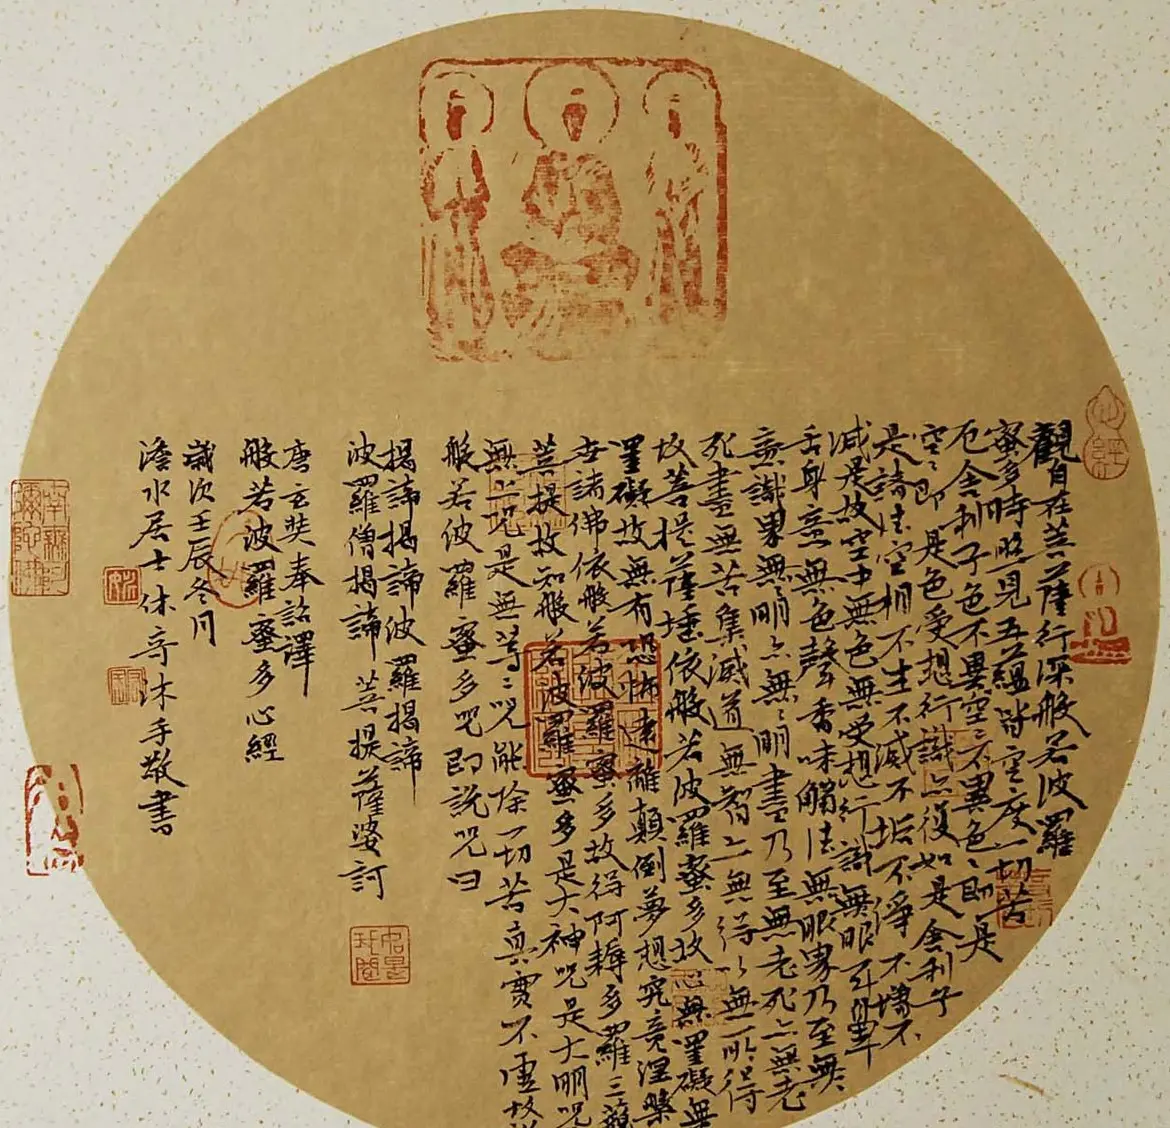 觀自在菩薩行深般若波羅
蜜多時照見五蘊皆空度一切苦
厄舍利子色不異空〻不異色〻即是
空〻即是色受想行識亦復如是舍利子
是諸法空相不生不滅不垢不淨不增不
減是故空中無色無受想行識無眼耳鼻
舌身意無色聲香味觸法無眼界乃至無
意識界無〻明亦無〻明盡乃至無老死亦無老
死盡無苦集滅道無智亦無得以無所得
故菩提薩埵依般若波羅蜜多故心無罣礙無
罣礙故無有恐怖遠離顛倒夢想究竟涅槃
世諸佛依般若波羅蜜多故得阿耨多羅三藐
菩提故知般若波羅蜜多是大神咒是大明咒
無上咒是無等〻咒能除一切苦真實不虛故說
般若波羅蜜多咒即說咒曰
揭諦揭諦波羅揭諦
波羅僧揭諦菩提薩婆訶
唐玄奘奉詔譯
般若波羅蜜多心經
歲次壬辰冬月
澹水居士休奇沐手敬書
心經
南無阿彌陀佛